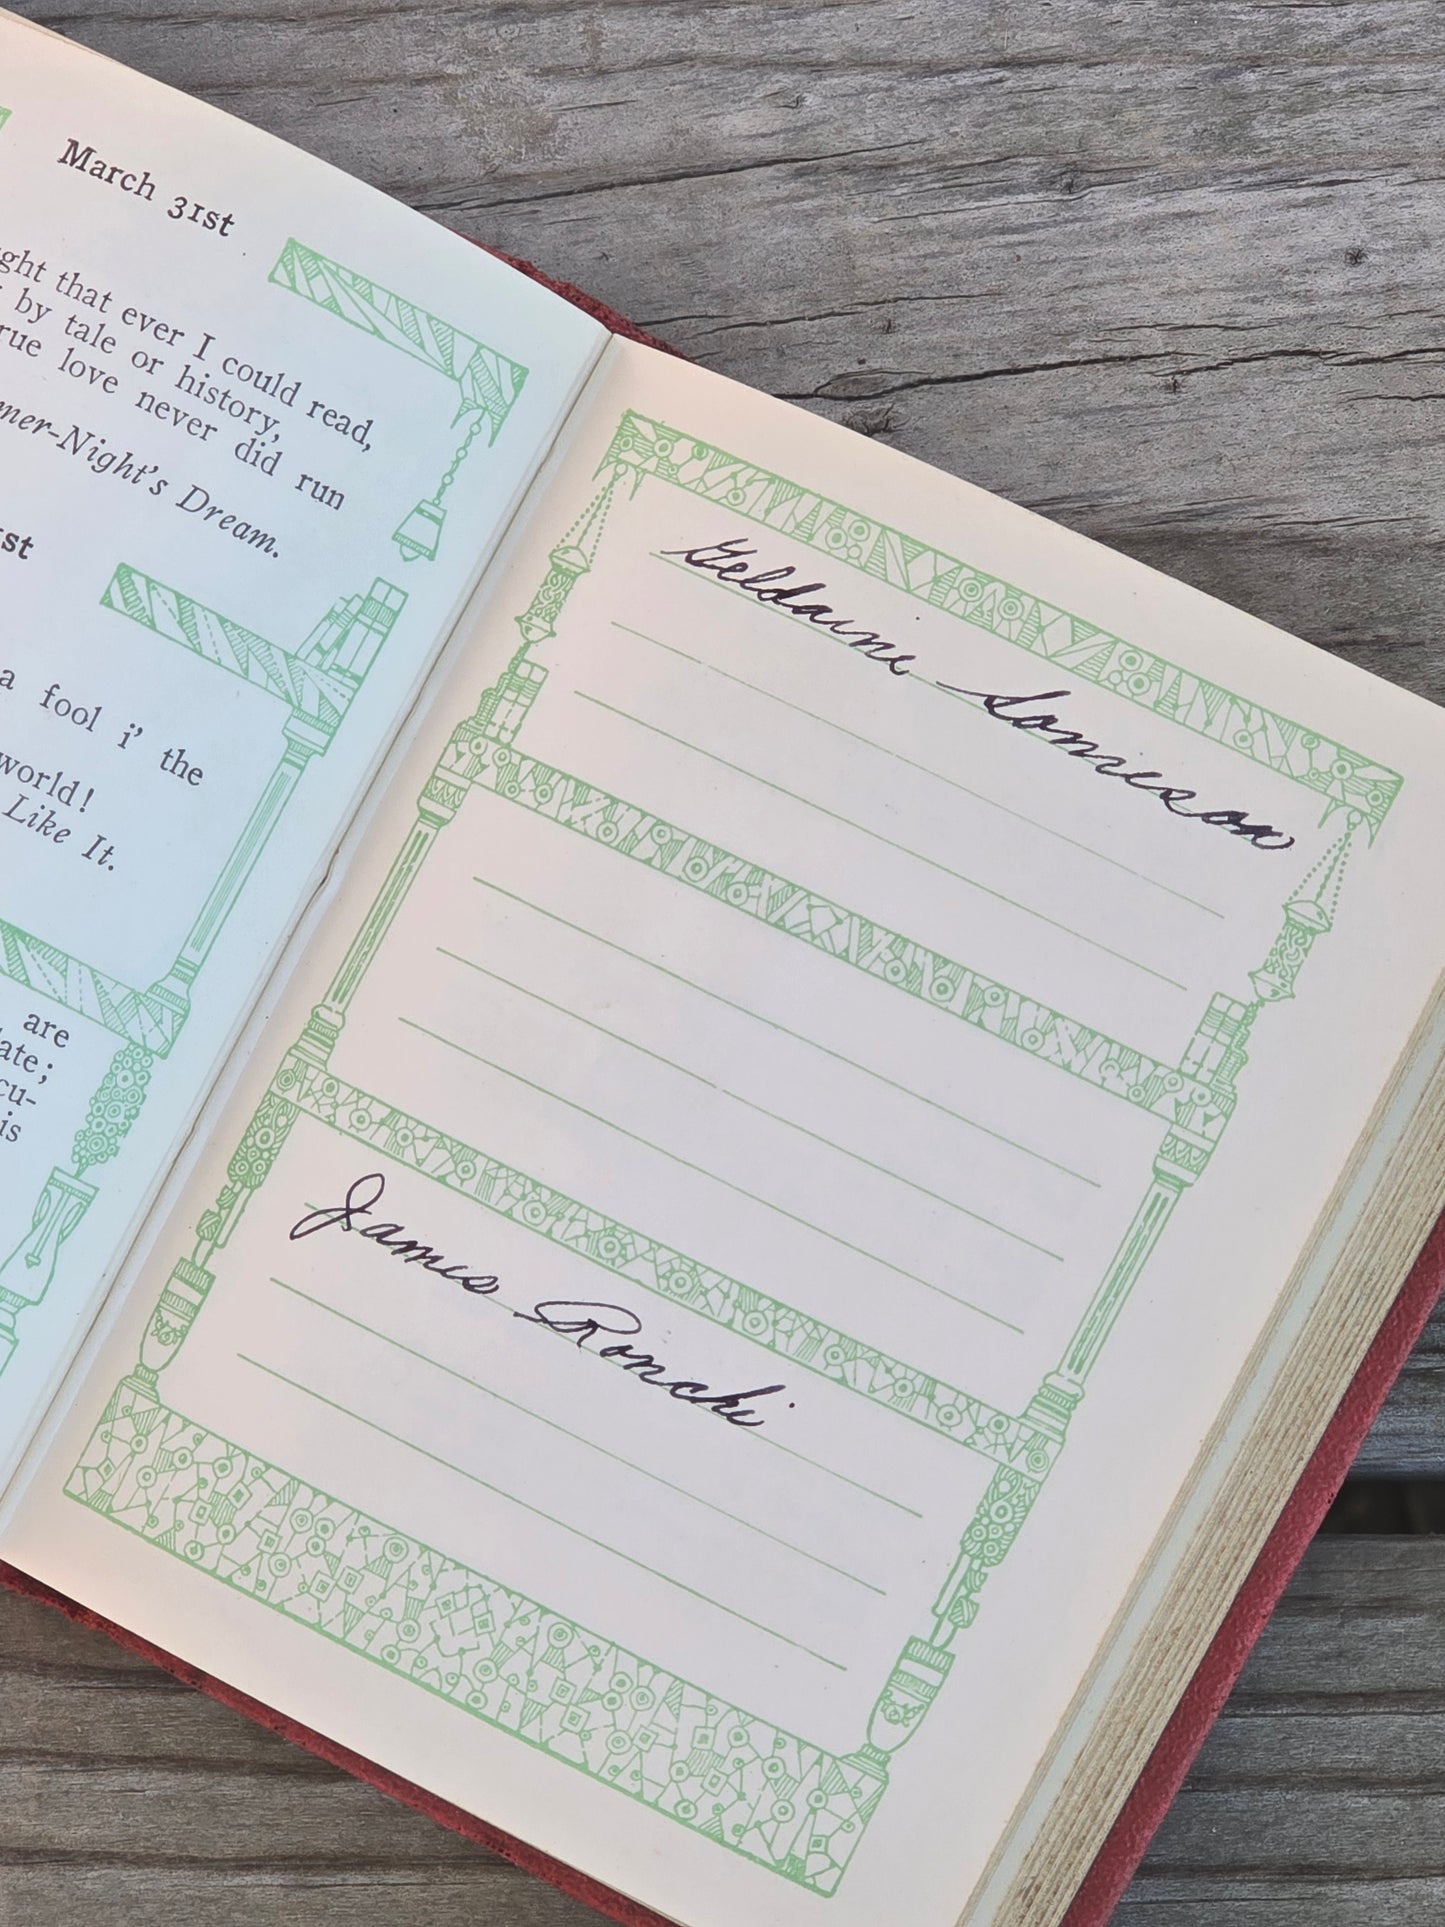 March 31st
ght that ever I could read,
by tale or history,
rue love never did run
mer-Night's Dream.
st
a fool i' the
world!
Like It.
are
ate;
cu-
is
Geldaine Somieson
James Ronchi